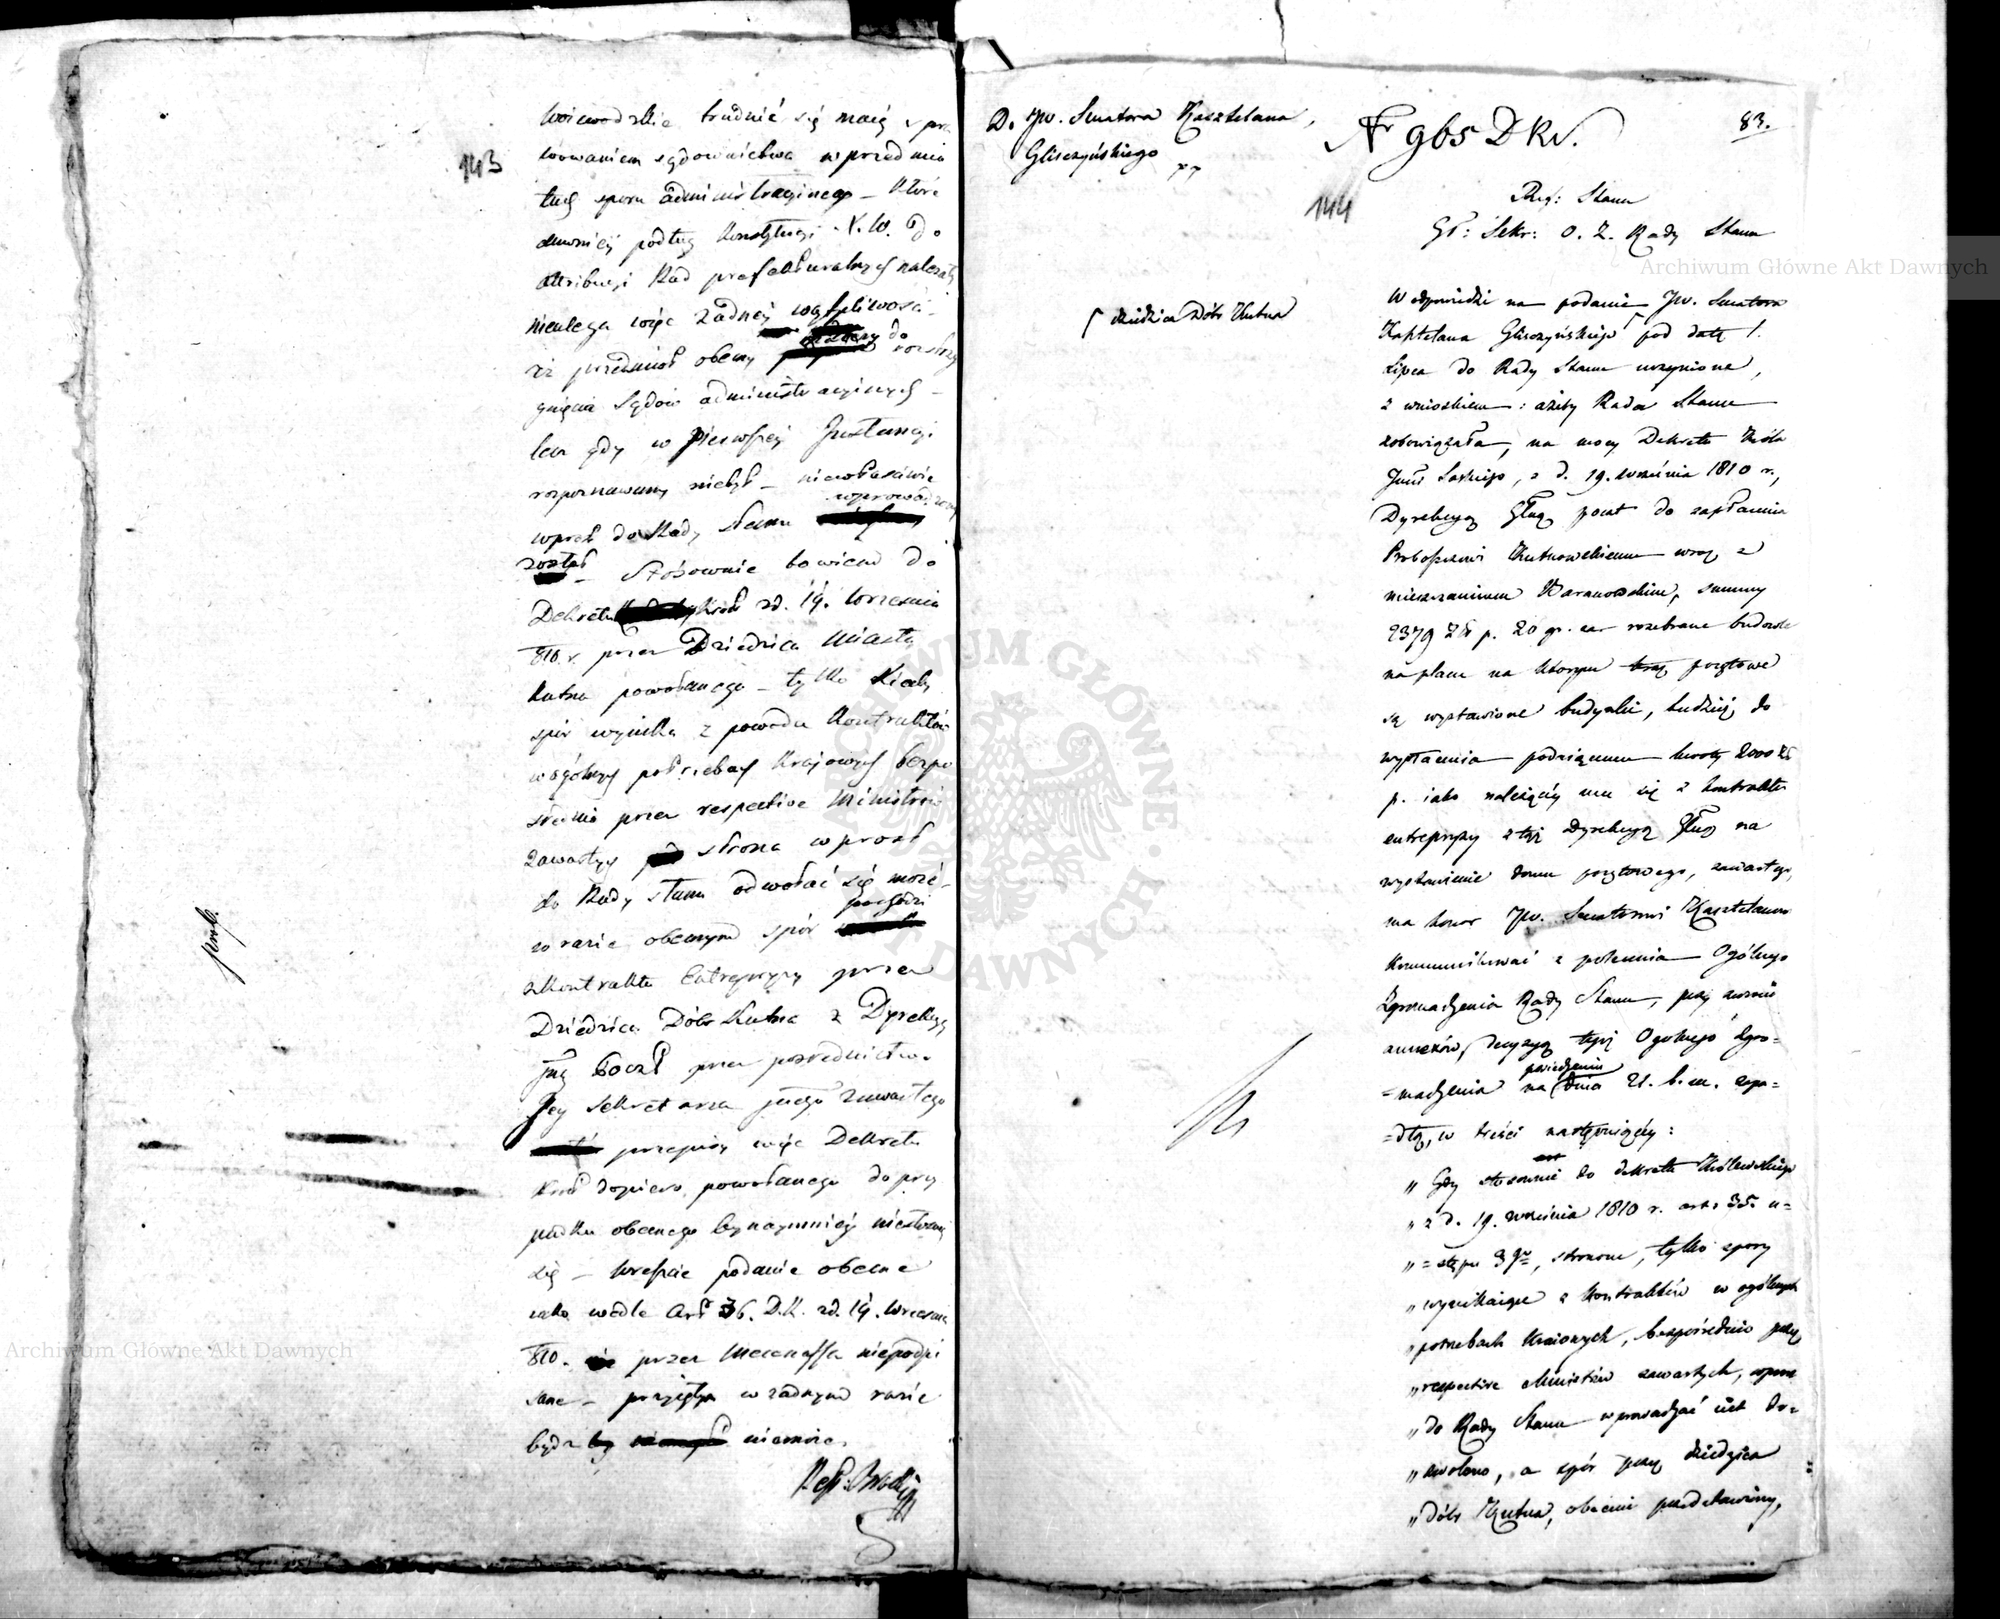 143
woiewodzkie trudnić się maią spra
wowaniem sądownictwa w przedmio
tach sporu administracyinego – które
dawniey podług Konstytucyi X. W. do
attribucyi Rad prefekturalnych należały
nieulega więc żadney wątpliwości
iż przedmiot obecny do rozstrzy
gnięcia Sądów administracyinych –
lecz gdy w pierwszey Instancyi
rozpoznawany niebył – niewłaściwie
wprowadzony
wprost do Rady Stanu
został – Stósownie bowiem do
Dekretu Król zd. 19. Września
810. r. przez Dziedzica Miasta
Kutna powołanego – tylko kiedy
spór wynika z powodu Kontraktów
w ogólnych potrzebach Kraiowych bezpo
średnio przez respective Ministrów
zawartych strona wprost
do Rady Stanu odwołać się może –
pochodzi
w razie obecnym spór
z Kontraktu Entrepryzy przez
Dziedzica Dóbr Kutna z Dyrekcyą
Jną Poczt przez pośrednictwo
Jey Sekretarza Jnego zawartego
przepisy więc Dekretu
Król dopiero powołanego do przy
padku obecnego bynaymniey niestosuią
się – wreszcie podanie obecne
iako wedle Art 36. D.K. zd. 19. Września
810. przez Mecenassa niepodpi
sane – przyięte w żadnym razie
bydz niemoże.
D. Jw. Senatora Kasztelana
Gliszczyńskiego
Nr 965 DKr.
83.
144
Sekr: O. Z. Rady Stanu
W odpowiedzi na podanie Jw. Senatora
Kasztelana Gliszczyńskiego pod datą 1.
dziedzica Dóbr Kutna
Lipca do Rady Stanu uczynione,
z wnioskiem: ażeby Rada Stanu
zobowiązała, na mocy Dekretu Króla
Jmci Saskiego, z d. 19. września 1810 r.,
Dyrekcyą Głną poczt do zapłacenia
Proboszczowi Kutnowskiemu wraz z
mieszczaninem Baranowskim, summy
2379 Zł p. 20 gr. za rozebrane budowle
na placu na którym pocztowe
są wystawione budynki, tudzież do
wypłacenia podaiącemu kwoty 2000 Zł
p. iako należącey mu się z kontraktu
entrepryzy z tąż Dyrekcyą Głną na
wystawienie domu pocztowego, zawartego,
ma honor Jw. Senatorowi Kasztelanowi
kommunikować z polecenia Ogólnego
Zgromadzenia Rady Stanu, przy zwrocie
annexów, decyzyą tegoż Ogólnego Zgro=
posiedzeniu
=madzenia na dnia 21. b. m. zapa=
=dłą, w treści następuiącey:
„ Gdy stosownie do dekretu Królewskiego
„ z d. 19. września 1810 r. art: 35. u=
„ =stępu 3go, stronom, tylko spory
„ wynikaiące z kontraktów w ogólnych
„ potrzebach kraiowych, bezpośrednio przez
„ respective Ministrów zawartych, wprost
„ do Rady Stanu wprowadzać iest do=
„ zwolono, a spór przez dziedzica
„ Dóbr Kutna, obecnie przedstawiony,
Archiwum Główne Akt Dawnych
Archiwum Główne Akt Dawnych
ARCHIWUM GŁÓWNE AKT DAWNYCH